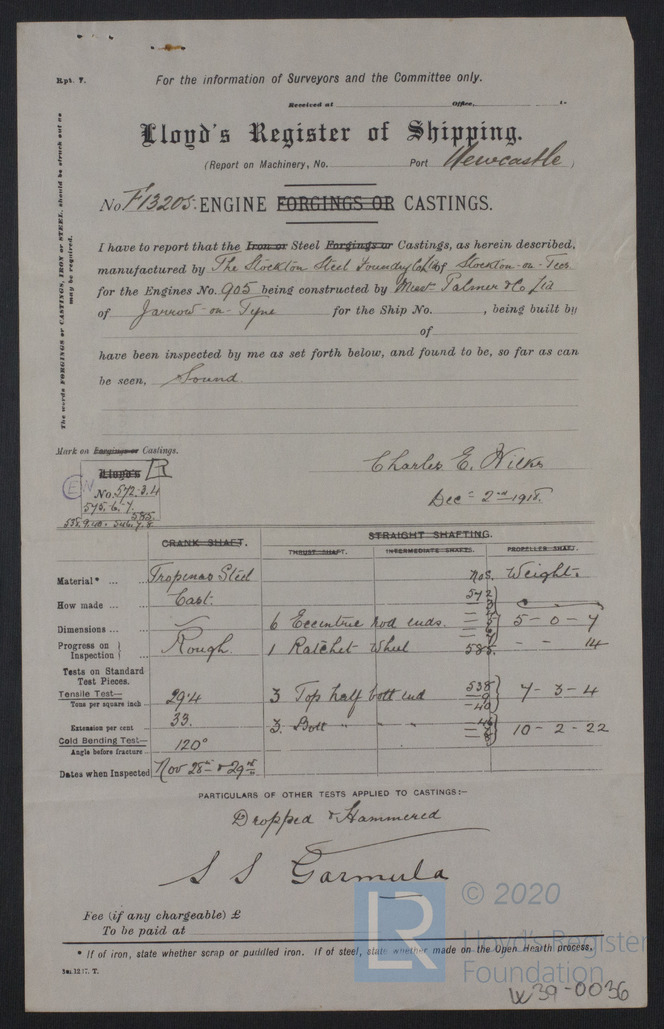 Rpt. 7.
For the information of Surveyors and the Committee only.
Received at Office, 19
Lloyd's Register of Shipping.
(Report on Machinery, No. Port Newcastle )
No. F13205. ENGINE FORGINGS OR CASTINGS.
The words FORGINGS or CASTINGS, IRON or STEEL, should be struck out as may be required.
I have to report that the Iron or Steel Forgings or Castings, as herein described,
manufactured by The Stockton Steel Foundry Co Ltd of Stockton-on-Tees
for the Engines No. 905 being constructed by Messrs Palmer & Co Ltd
of Jarrow-on-Tyne for the Ship No. , being built by
of
have been inspected by me as set forth below, and found to be, so far as can
be seen, Sound.
Mark on Forgings or Castings.
Charles E. Wilks
Lloyd's R
EN No. 572.3.4
575.6.7.
585.
538.9.40. 546.7.8
Dec 2nd 1918.
CRANK SHAFT. STRAIGHT SHAFTING.
THRUST SHAFT. INTERMEDIATE SHAFTS. PROPELLER SHAFT.
Material* Tropenas Steel Nos. Weight.
How made Cast. 572
Dimensions 6 Eccentric rod ends. 5 - 0 - 7
Progress on Inspection Rough. 1 Ratchet Wheel 585. - - 14
Tests on Standard Test Pieces.
Tensile Test— Tons per square inch 29.4 3 Top half bolt end 538 9 40 7 - 3 - 4
Extension per cent 33. 3. Bott " " 46 10 - 2 - 22
Cold Bending Test— Angle before fracture 120°
Dates when Inspected Nov 28th & 29th
PARTICULARS OF OTHER TESTS APPLIED TO CASTINGS:—
Dropped & Hammered
S S Garmula
Fee (if any chargeable) £
To be paid at
* If of iron, state whether scrap or puddled iron. If of steel, state whether made on the Open Hearth process.
T.
LR © 2020
Lloyd's Register
Foundation
W39-0036